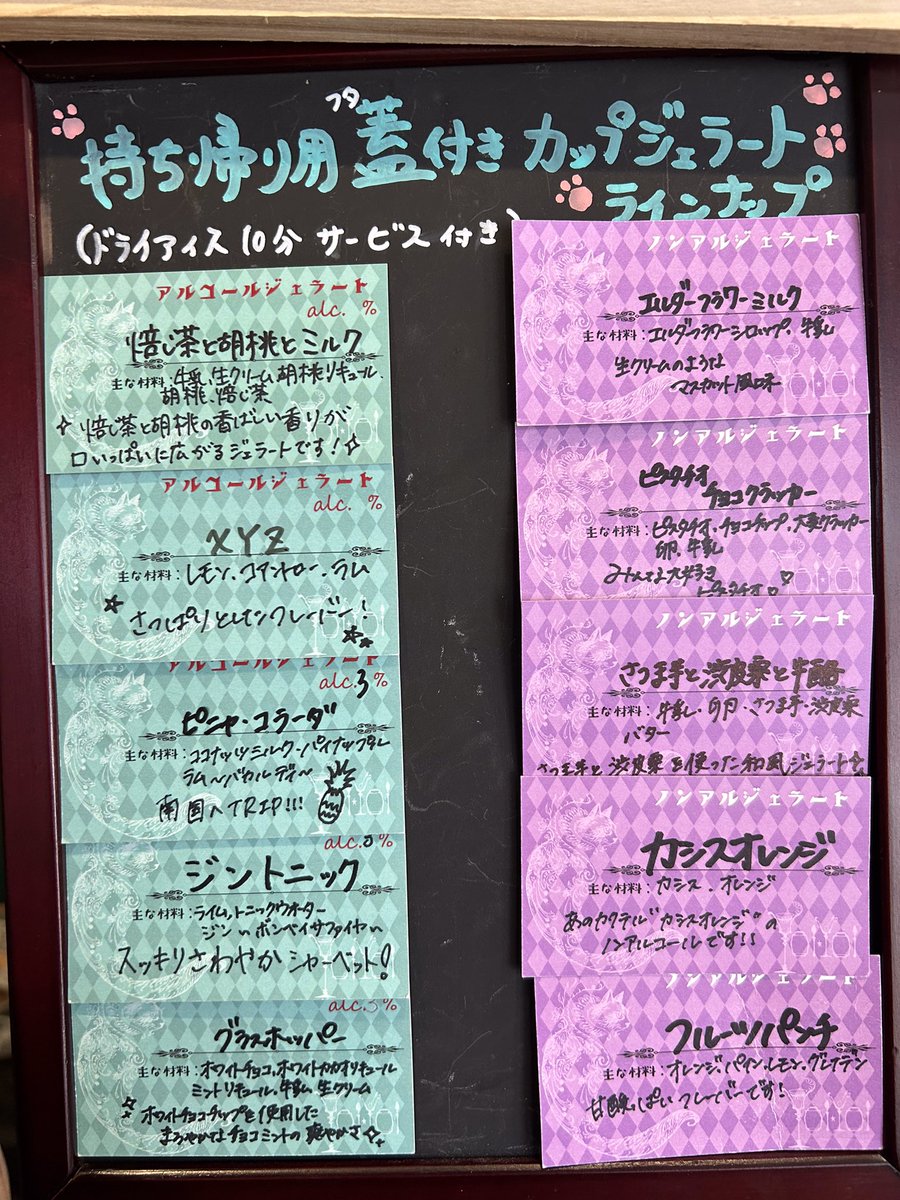 フタ
持ち帰り用 蓋付き カップジェラート
ラインナップ
(ドライアイス 10分 サービス付き)
アルコールジェラート
alc. %
焙じ茶と胡桃とミルク
主な材料:牛乳、生クリーム、胡桃リキュール、
胡桃、焙じ茶
焙じ茶と胡桃の香ばしい香りが
口いっぱいに広がるジェラートです!
アルコールジェラート
alc. %
XYZ
主な材料:レモン、コアントロー、ラム
さっぱりとしたフレーバー!
アルコールジェラート
alc.3%
ピニャ・コラーダ
主な材料:ココナッツミルク・パイナップル
ラム〜バカルディ〜
南国へTRIP!!!
alc.3%
ジントニック
主な材料:ライム、トニックウォーター
ジン〜ボンベイサファイヤ〜
スッキリさわやかシャーベット!
alc.3%
グラスホッパー
主な材料:ホワイトチョコ、ホワイトカカオリキュール
ミントリキュール、牛乳、生クリーム
ホワイトチョコチップを使用した
まろやかなチョコミントの爽やかさ
ノンアルジェラート
エルダーフラワーミルク
主な材料:エルダーフラワーシロップ、牛乳
生クリームのような
マスカット風味
ノンアルジェラート
ピスタチオ
チョコクラッカー
主な材料:ピスタチオ、チョコチップ、大麦クラッカー
卵、牛乳
みんな大好き
ピスタチオ
ノンアルジェラート
さつま芋と渋皮栗と牛酪
主な材料:牛乳・卵・さつま芋・渋皮栗
バター
さつま芋と渋皮栗を使った和風ジェラート
ノンアルジェラート
カシスオレンジ
主な材料:カシス、オレンジ
あのカクテル"カシスオレンジ"の
ノンアルコールです!!
ノンアルジェラート
フルーツパンチ
主な材料:オレンジ、パイン、レモン、グレナデン
甘酸っぱいフレーバーです!